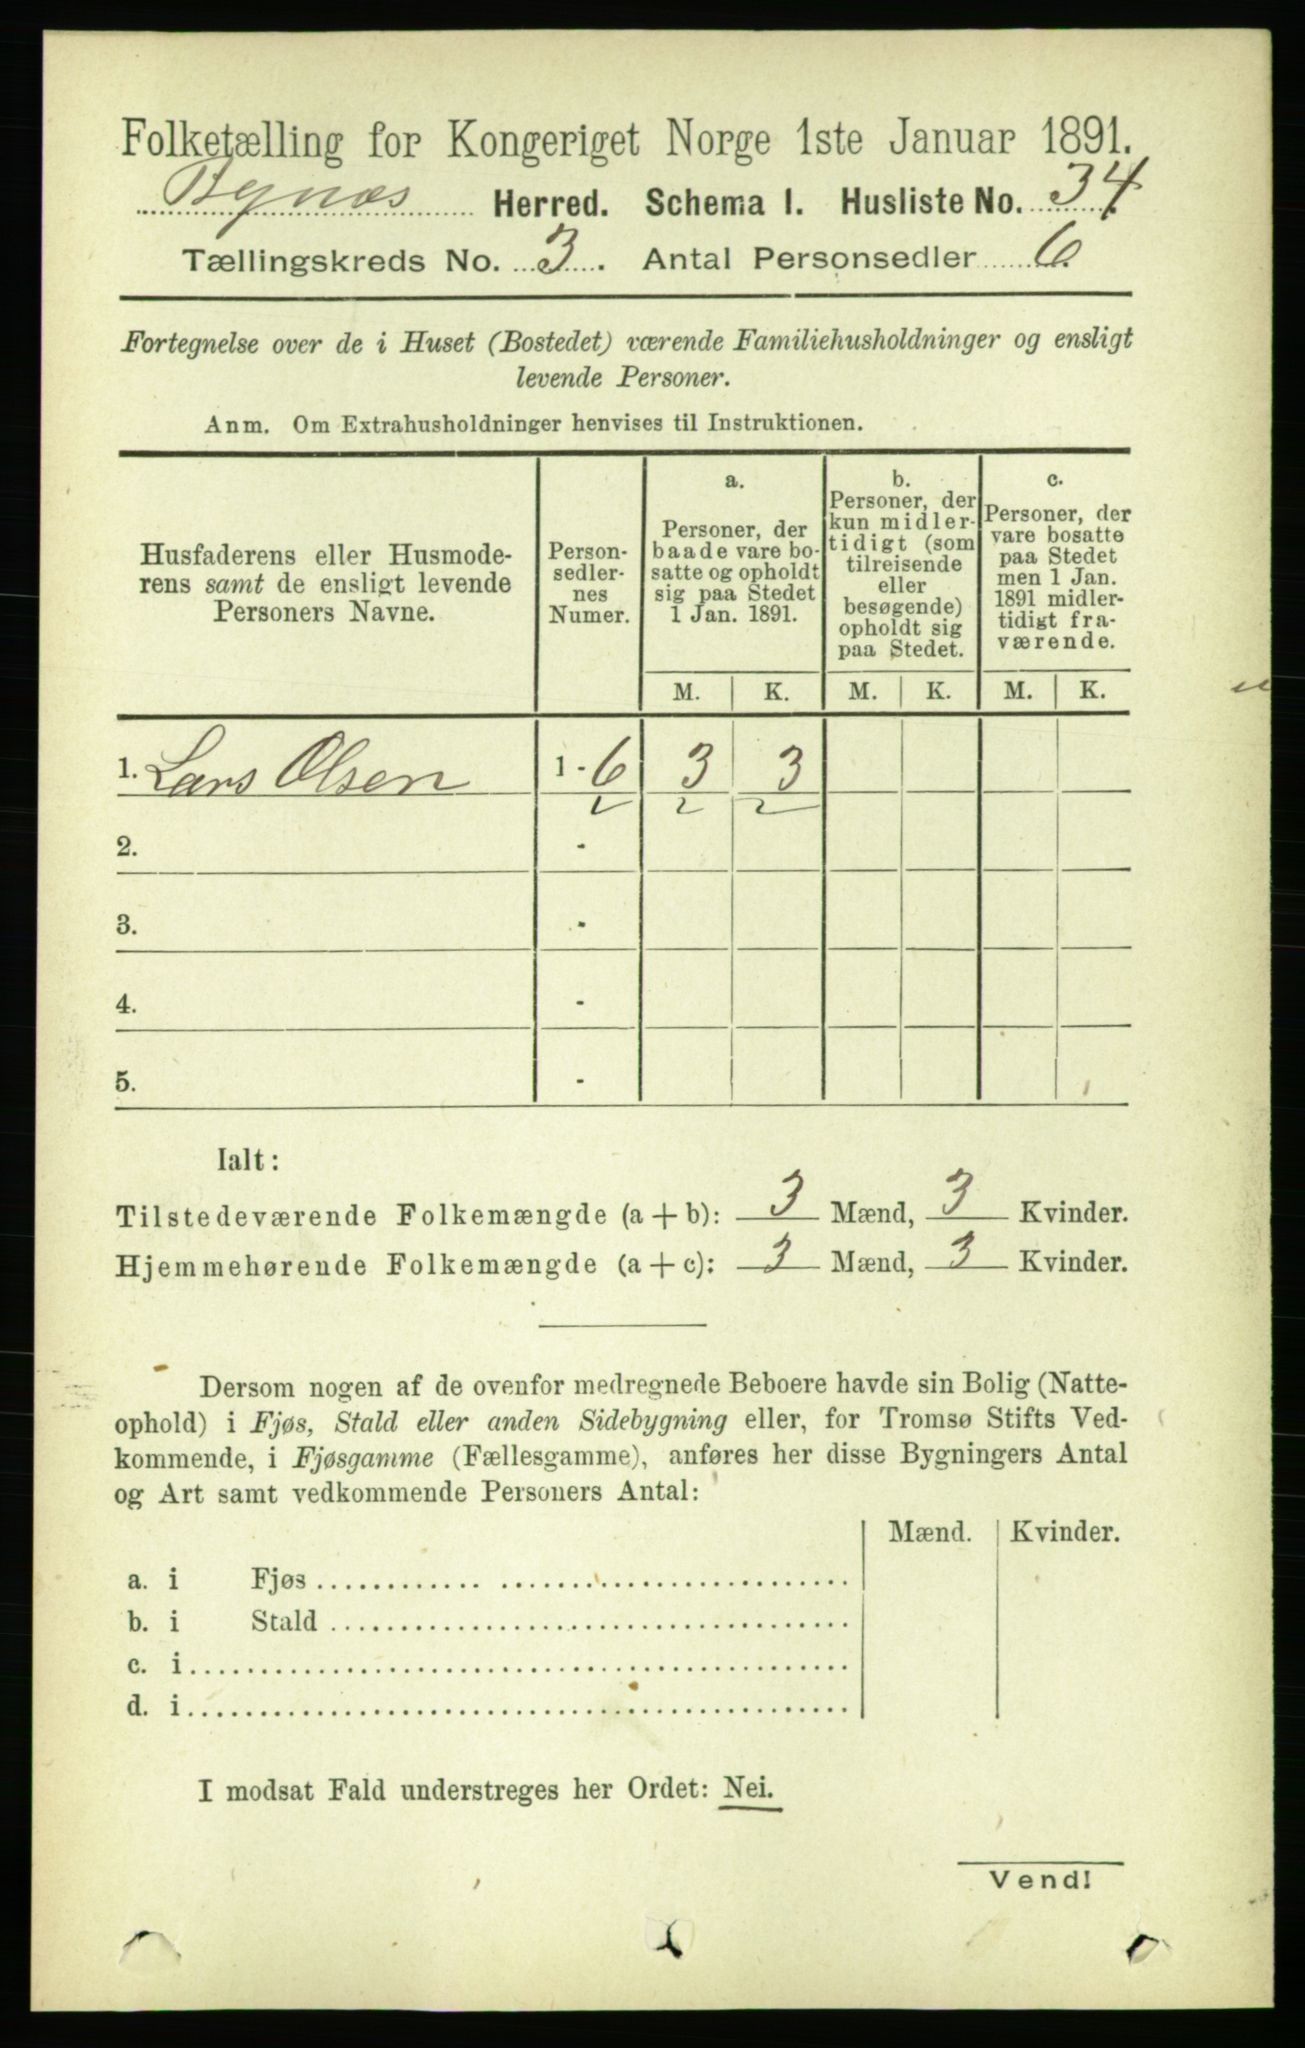 Folketælling for Kongeriget Norge 1ste Januar 1891.
Bynæs Herred. Schema I. Husliste No. 34
Tællingskreds No. 3. Antal Personsedler 6
Fortegnelse over de i Huset (Bostedet) værende Familiehusholdninger og ensligt
levende Personer.
Anm. Om Extrahusholdninger henvises til Instruktionen.
Husfaderens eller Husmode-
rens samt de ensligt levende
Personers Navne.
Person-
sedler-
nes
Numer.
a.
Personer, der
baade vare bo-
satte og opholdt
sig paa Stedet
1 Jan. 1891.
b.
Personer, der
kun midler-
tidigt (som
tilreisende
eller
besøgende)
opholdt sig
paa Stedet.
c.
Personer, der
vare bosatte
paa Stedet
men 1 Jan.
1891 midler-
tidigt fra-
værende.
M. K. M. K. M. K.
1. Lars Olsen 1 - 6 3 3
2. -
3. -
4. -
5. -
Ialt:
Tilstedeværende Folkemængde (a + b): 3 Mænd, 3 Kvinder.
Hjemmehørende Folkemængde (a + c): 3 Mænd, 3 Kvinder.
Dersom nogen af de ovenfor medregnede Beboere havde sin Bolig (Natte-
ophold) i Fjøs, Stald eller anden Sidebygning eller, for Tromsø Stifts Ved-
kommende, i Fjøsgamme (Fællesgamme), anføres her disse Bygningers Antal
og Art samt vedkommende Personers Antal:
Mænd. Kvinder.
a. i Fjøs
b. i Stald
c. i
d. i
I modsat Fald understreges her Ordet: Nei.
Vend!